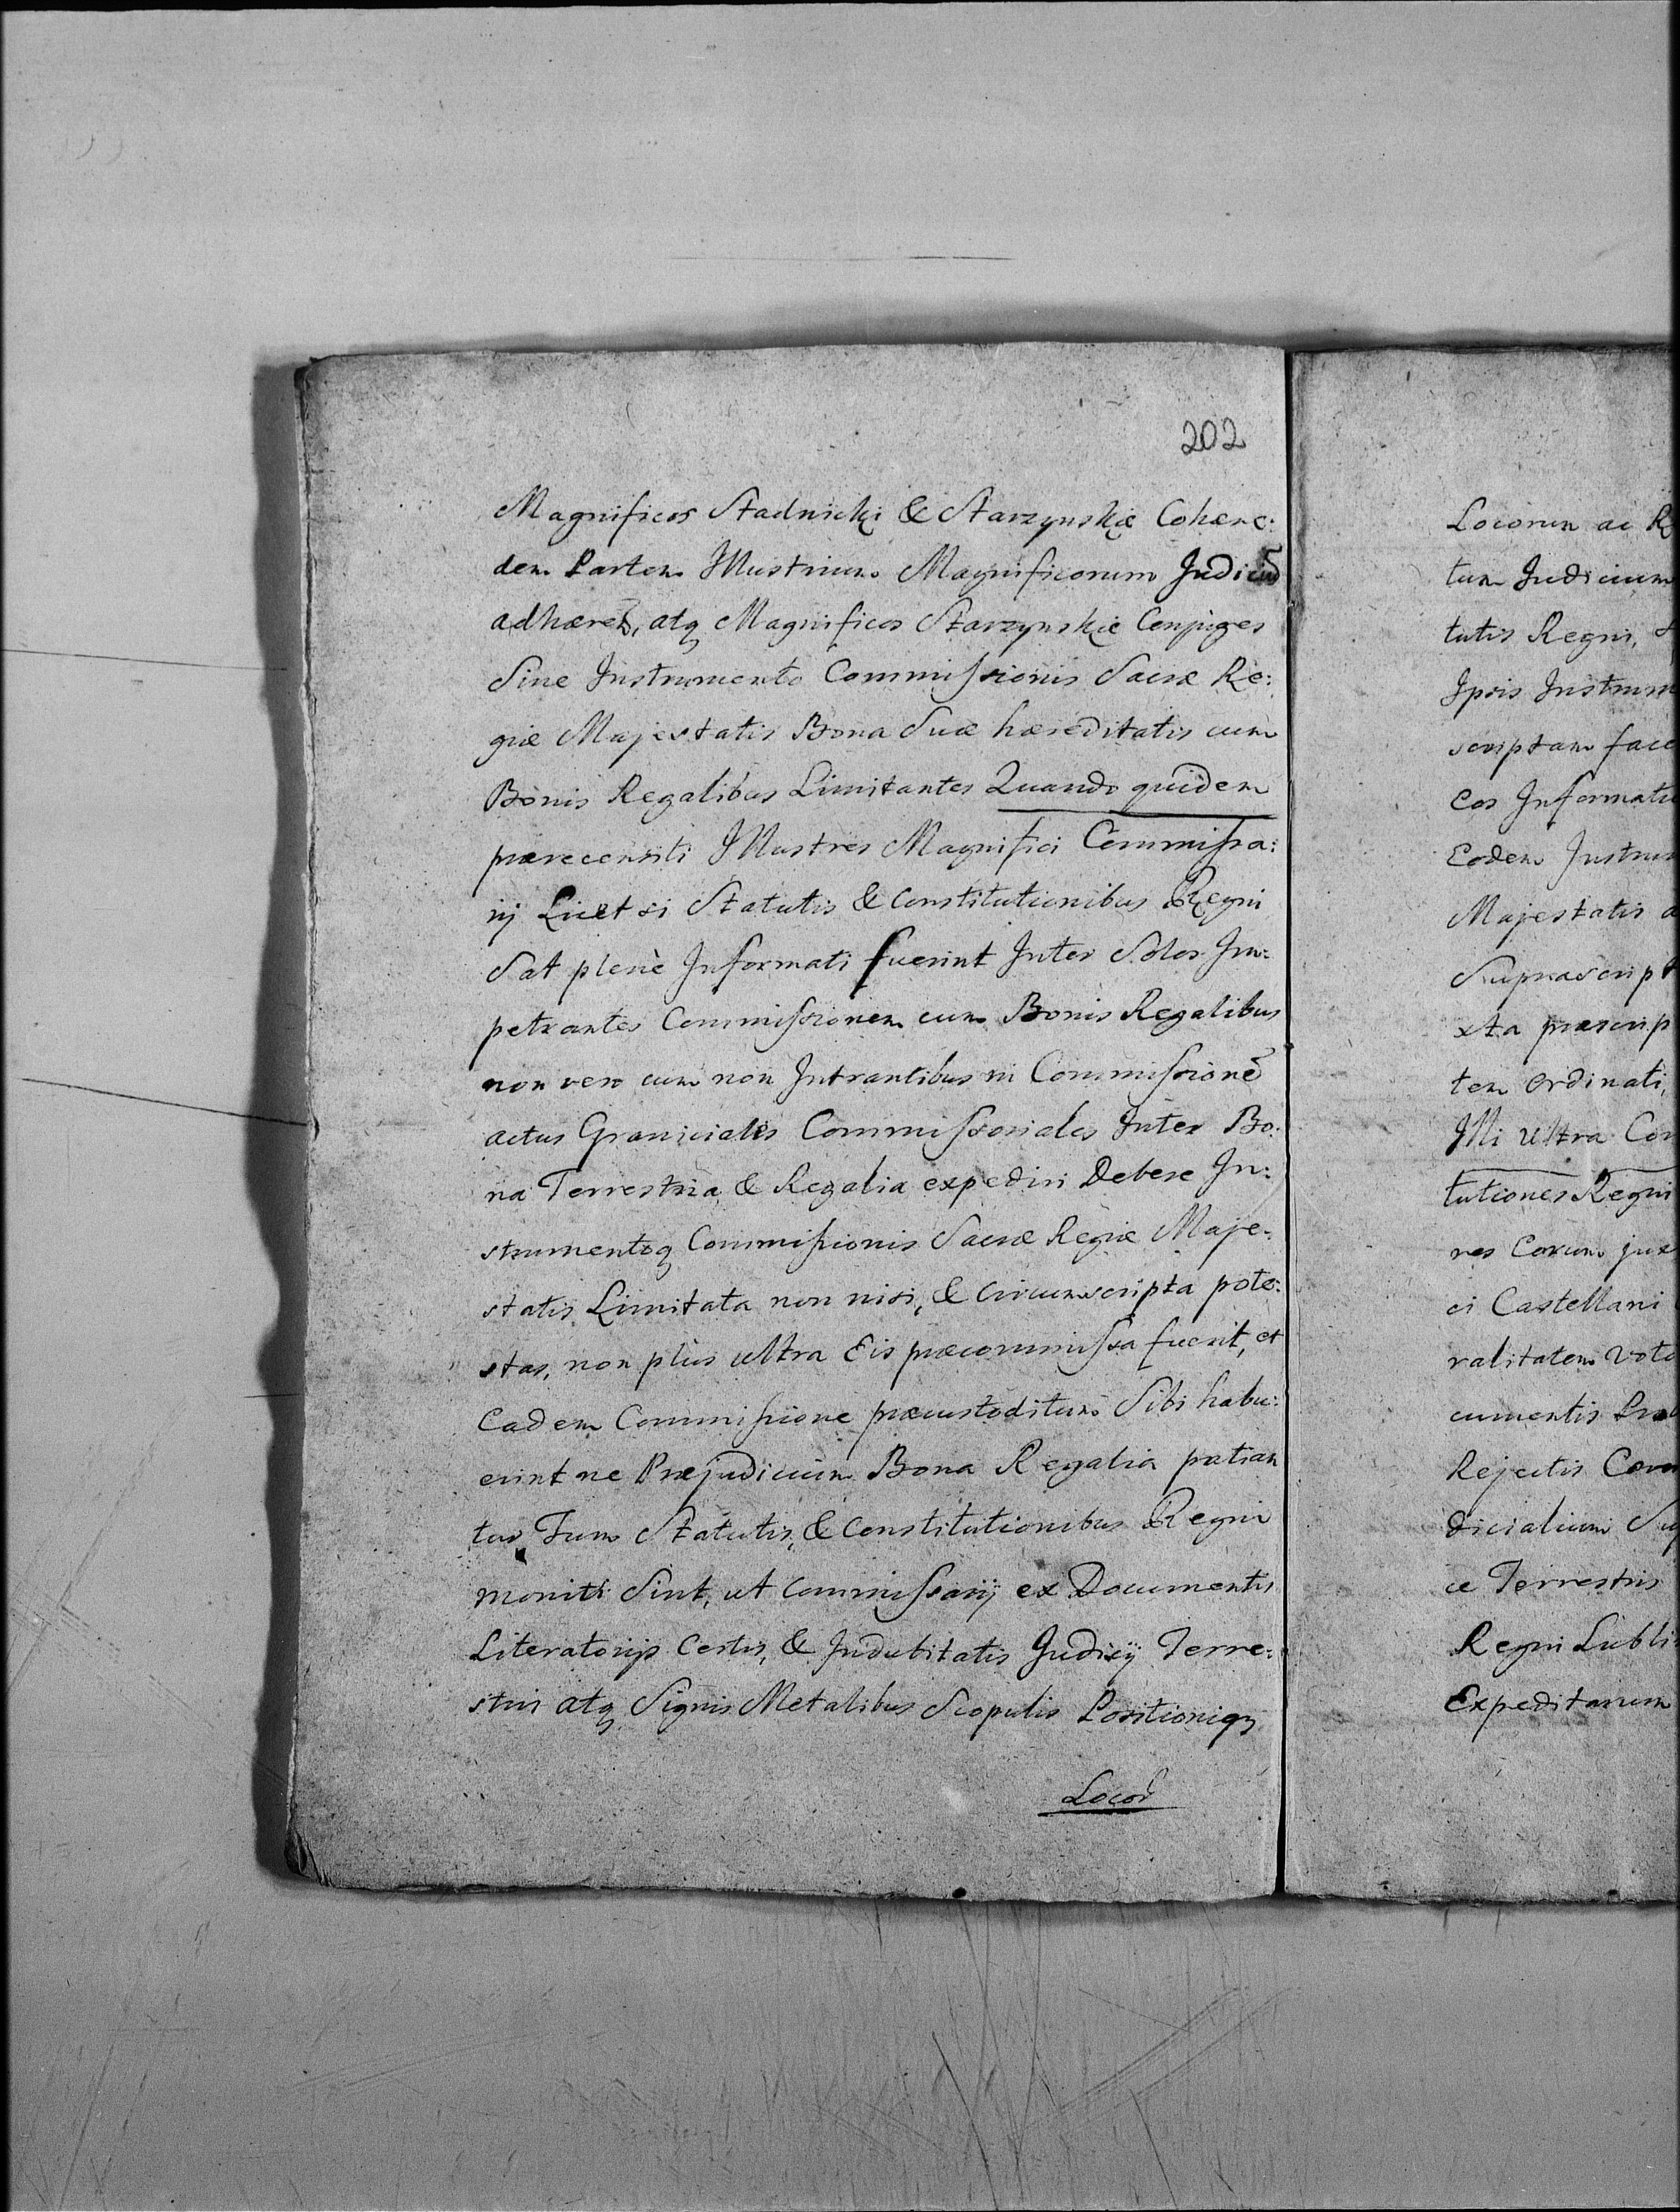 202
Magnificos Stadnicki & Starzynskie Cohære:
dem Partem Illustrium Magnificorum Judicũ
adhæreɫ, atq Magnificos Starzynskie Conjuges
Sine Instrumento Commissionis Sacræ Re:
giæ Majestatis Bona Suæ hæreditatis cum
Bonis Regalibus Limitantes Quando quidem
prærecensiti Illustres Magnifici Commissa:
rij Licet si Statutis & Constitutionibus Regni
Sat plenè Informati fuerint Inter Solos Im:
petrantes Commissionem cum Bonis Regalibus
non vero cum non Intrantibus in Commissionẽ
actus Granicialis Commissoriales Inter Bo:
na Terrestria & Regalia expediri Debere In:
strumentoq Commissionis Sacræ Regiæ Maje:
statis Limitata non nisi, & Circumscripta pote:
stas, non plus ultra Eis præcommissa fuerit, et
Eadem Commissione præcustoditum Sibi habu:
erint ne Præjudicium Bona Regalia patian
tur Tum Statutis, & Constitutionibus Regni
moniti Sint, ut Commissarij ex Documentis
Literatorijs Certis, & Indubitatis Judicij Terre:
stris atq Signis Metalibus Scopulis Positioniq
Locoř
Locorum ac R
tum Judicium
tutis Regni, &
Ipsis Instrum
scriptam face
Eos Informatu
Eodem Instrum
Majestatis a
Suprascript
xta præscrip
tem Ordinati,
Illi Ultra Con
tutiones Regni
res Eorum jux
ci Castellani
ralitatem Voto
cumentis Prod
Rejectis Com
dicialium Su
æ Terrestris
Regni Lubli
Expeditarum